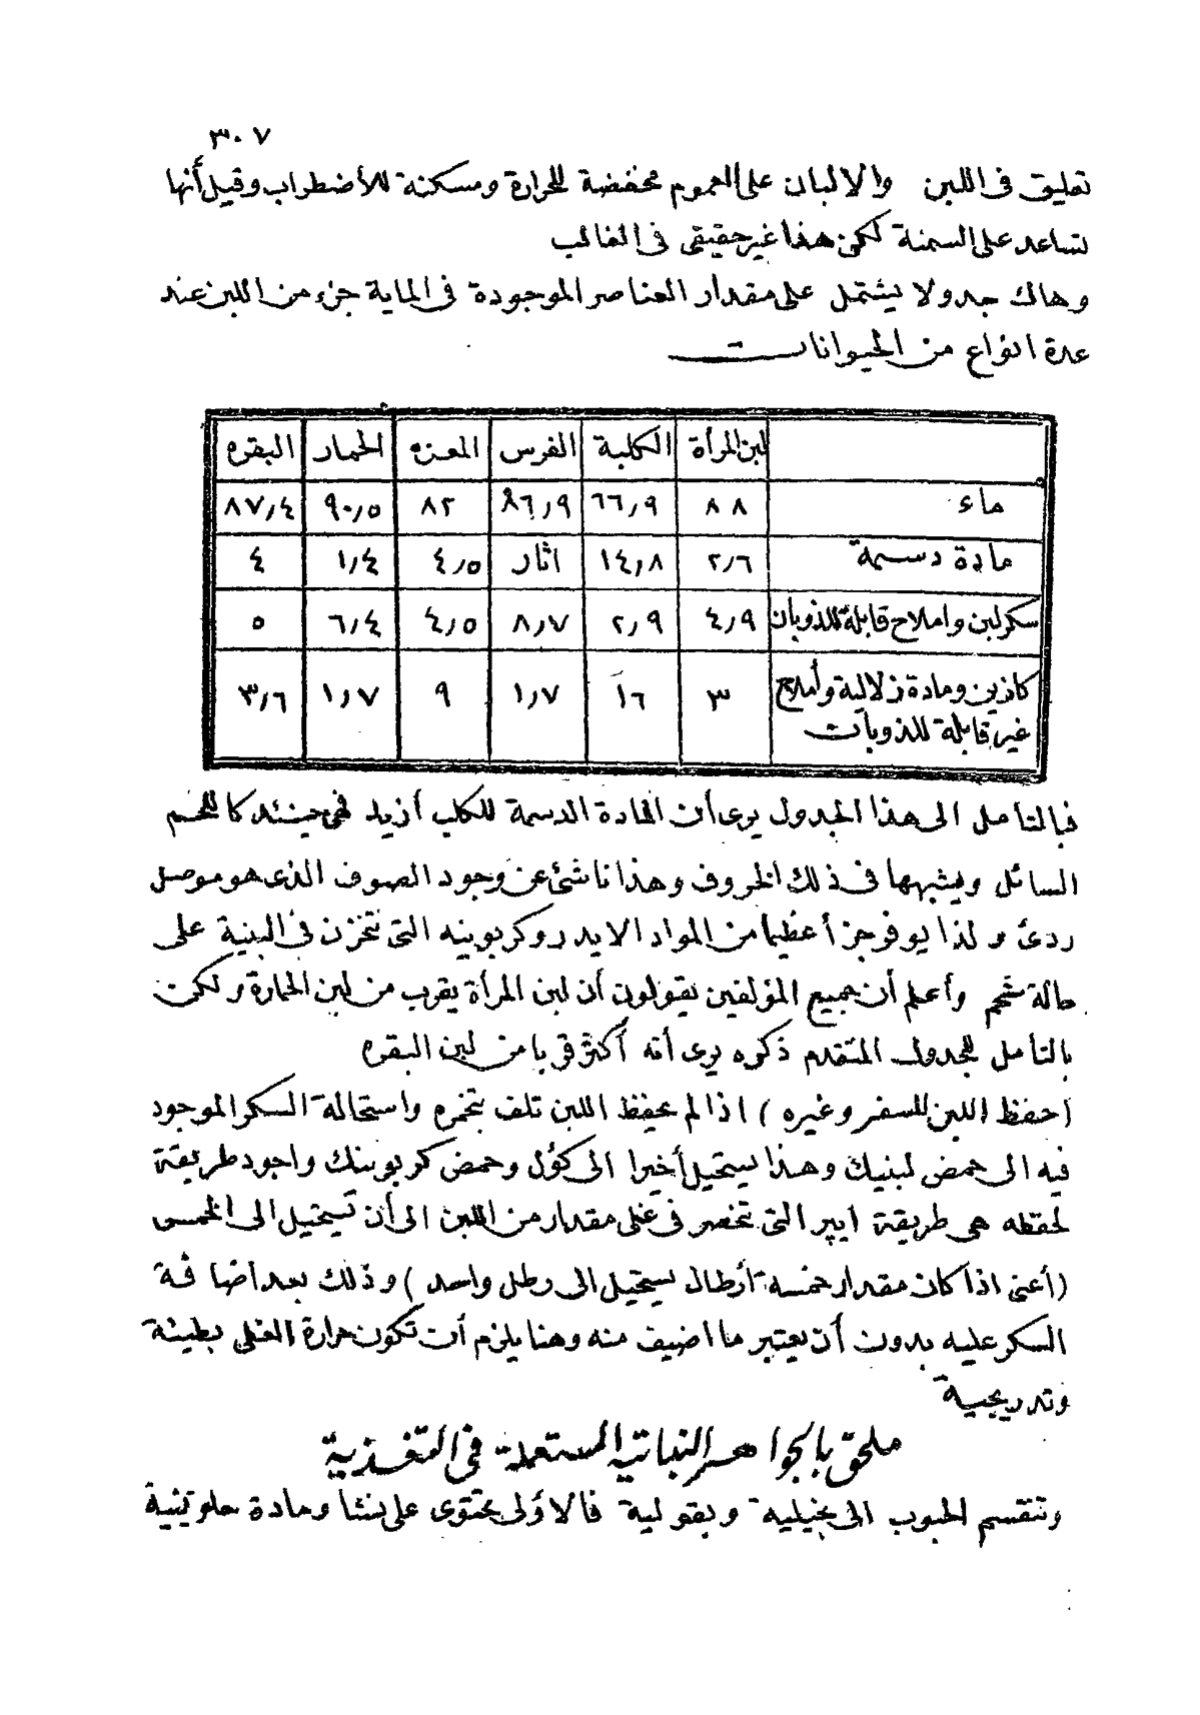 ٣٠٧
تعليق فى اللبن والالبان على العموم مخفضة للحرارة ومسكنة للأضطراب وقيل أنها
تساعد على السمنة لكن هذا غير حقيقى فى الغالب
وهاك جدولا يشتمل على مقدار العناصر الموجودة فى الماية جزء من اللبن عند
عدة انواع من الحيوانات
لبن المرأة الكلبة الفرس المعزه الحمار البقره
ماء ٨٨ ٦٦٫٩ ٨٦٫٩ ٨٢ ٩٠٫٥ ٨٧٫٤
مادة دسمة ٢٫٦ ١٤٫٨ اثار ٤٫٥ ١٫٤ ٤
سكر لبن واملاح قابلة للذوبان ٤٫٩ ٢٫٩ ٨٫٧ ٤٫٥ ٦٫٤ ٥
كازين ومادة زلالية وأملاح
غير قابلة للذوبان ٣ ١٦ ١٫٧ ٩ ١٫٧ ٣٫٦
فبالتامل الى هذا الجدول يرى أن المادة الدسمة للكلب أزيد فهى حينئد كاللحم
السائل ويشبهها فى ذلك الخروف وهذا ناشئ عن وجود الصوف الذى هو موصل
ردئ ولذا يوفر جزأ عظيما من المواد الايدروكربونيه التى تتخزن فى البنية على
حالة شحم وأعلم أن جميع المؤلفين يقولون أن لبن المرأة يقرب من لبن الحمارة ولكن
بالتأمل للجدول المتقدم ذكره يرى أنه أكثر قربا من لبن البقره
(حفظ اللبن للسفر وغيره) اذا لم يحفظ اللبن تلف بتخمره واستحالة السكر الموجود
فيه الى حمض لبنيك وهذا يستحيل أخيرا الى كؤل وحمض كربونيك واجود طريقة
لحفظه هى طريقة ايير التى تنحصر فى غلى مقدار من اللبن الى أن تستحيل الى الخمس
(أعنى اذا كان مقدار خمسة أرطال يستحيل الى رطل واحد) وذلك بعد اضافة
السكر عليه بدون أن يعتبر ما اضيف منه وهنا يلزم أن تكون حرارة الغلى بطيئة
وتدريجية
ملحق بالجواهر النباتيه المستعملة فى التغذية
وتنقسم الحبوب الى نجيليه وبقولية فالاؤلى يحتوى على نشا ومادة حلوتينية